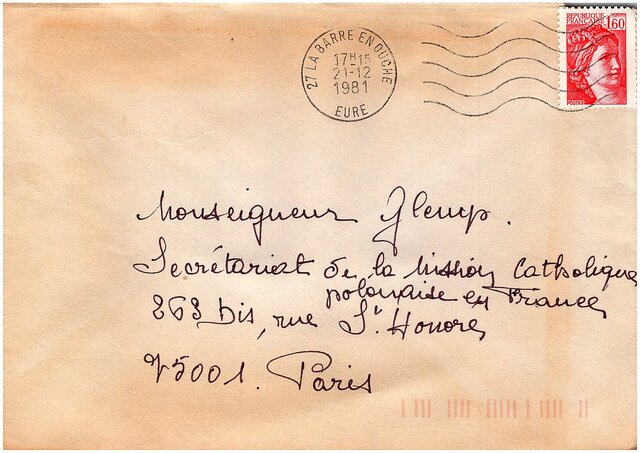 RÉPUBLIQUE
FRANÇAISE
1,60
27 LA BARRE EN OUCHE
17H15
21-12
1981
EURE
Monseigneur Glemp.
Secrétariat de la Mission Catholique
polonaise en France
263 bis, rue St Honoré
75001. Paris